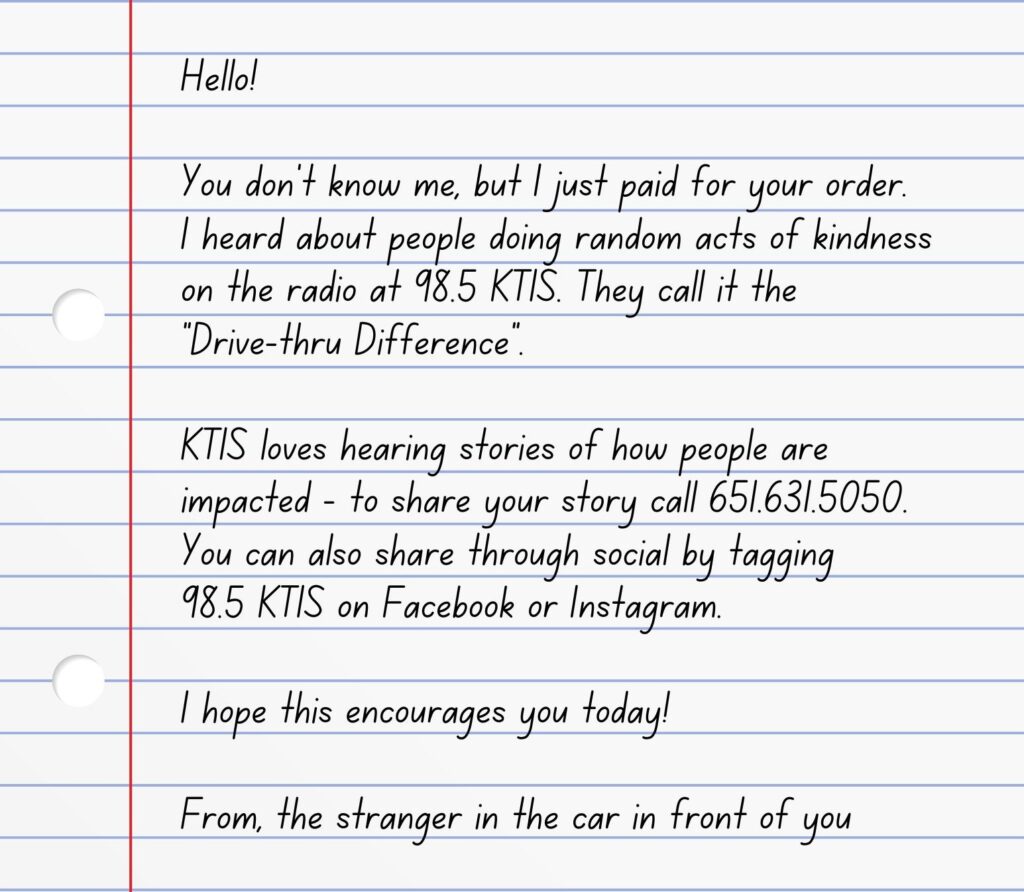 Hello!
You don't know me, but I just paid for your order.
I heard about people doing random acts of kindness
on the radio at 98.5 KTIS. They call it the
"Drive-thru Difference".
KTIS loves hearing stories of how people are
impacted - to share your story call 651.631.5050.
You can also share through social by tagging
98.5 KTIS on Facebook or Instagram.
I hope this encourages you today!
From, the stranger in the car in front of you